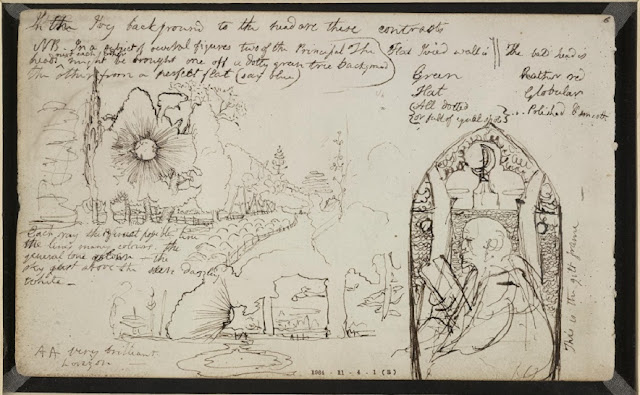 In the Ivy background to the head are these contrasts
NB. In a subject of several figures two of the Principal The
heads might be brought one off a dotty green tree background
The other from a perfect flat (say blue)
must each
Flat Ivied wall is
Green
Flat
All dotted
(or full of equal spots)
The bald head is
Rather red
Globular
Polished & smooth
6
Each ray the finest possible line
the lines many colours. the
general tone
the
sky just above the dazzling
white —
AA very brilliant
1964 · 11 - 4 - 1 (
This is the gilt frame